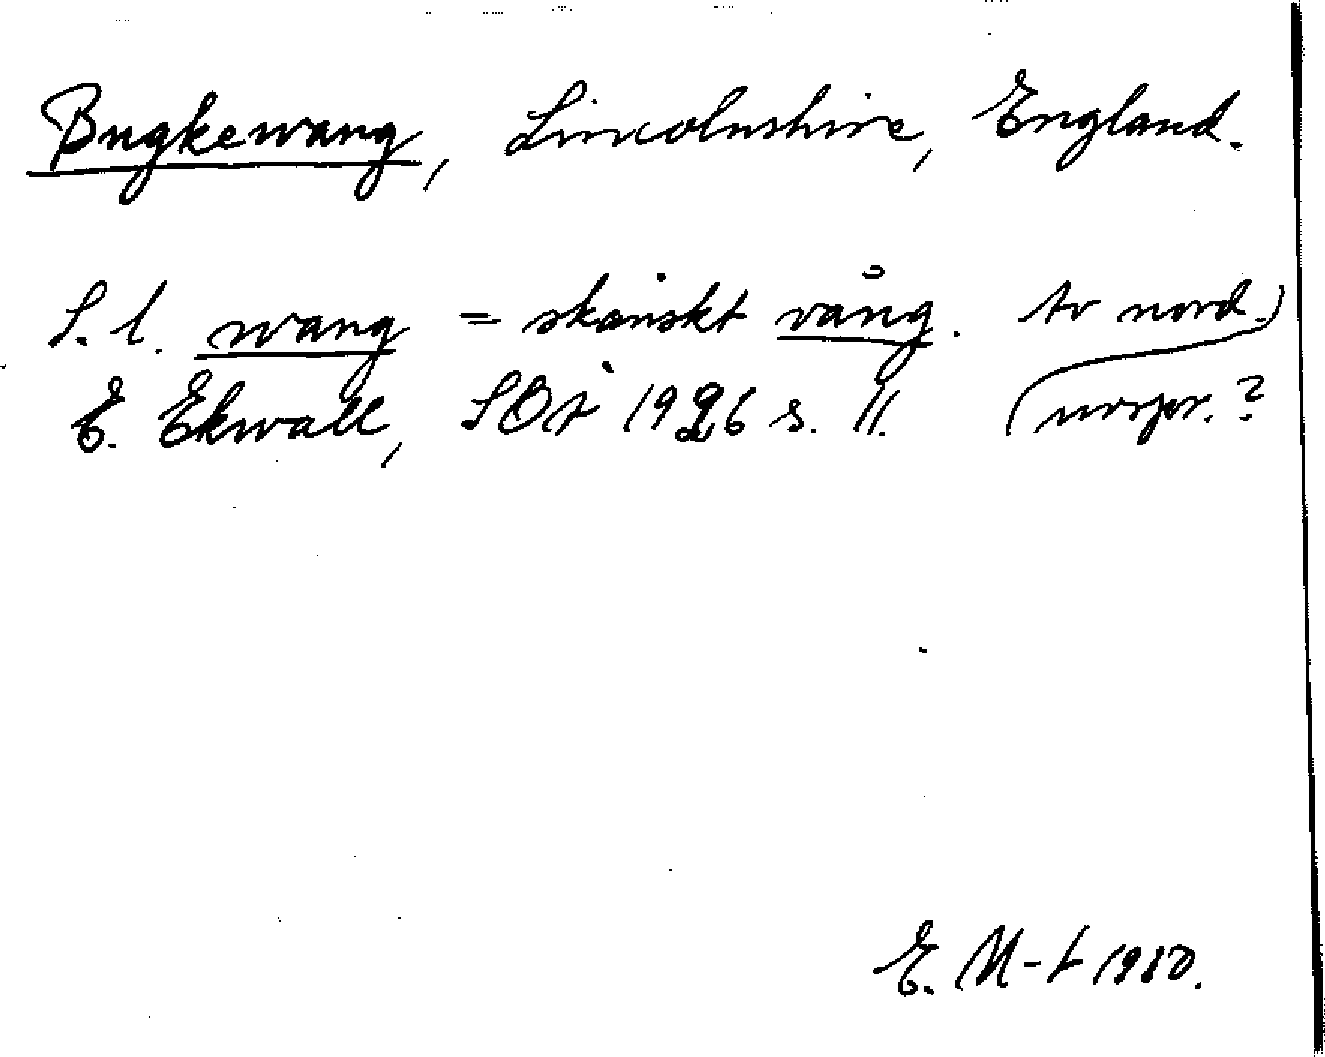 Bugkewang, Lincolnshire, England.
S. l. wang = skånskt vång. Av nord.
E. Ekwall, SOÅ 1926 s. 11. urspr.?
E. M-t 1980.